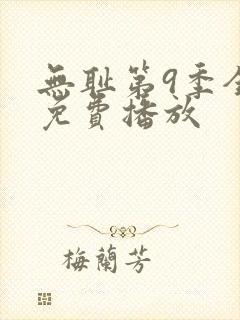 無耻第9季全
免費播放
梅蘭芳